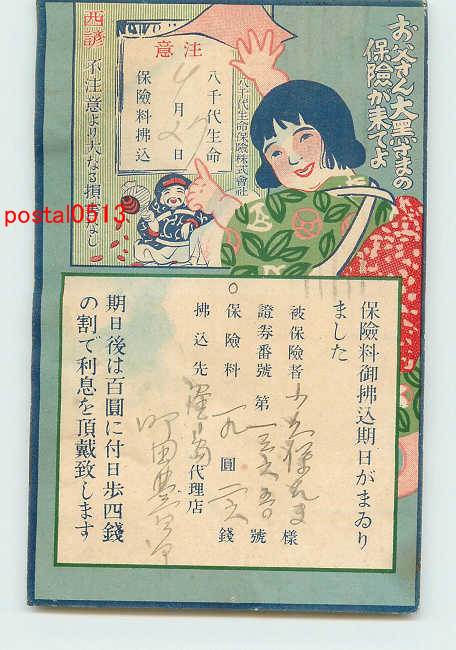 お父さん大黒さまの
保險が来てよ
注意
八千代生命
月 日
保險料拂込
八千代生命保險株式會社
西諺
不注意より大なる損害なし
postal0513
保險料御拂込期日がまゐり
ました
被保險者 様
證券番號第 號
保險料 圓 錢
拂込先 代理店
期日後は百圓に付日歩四錢
の割で利息を頂戴致します